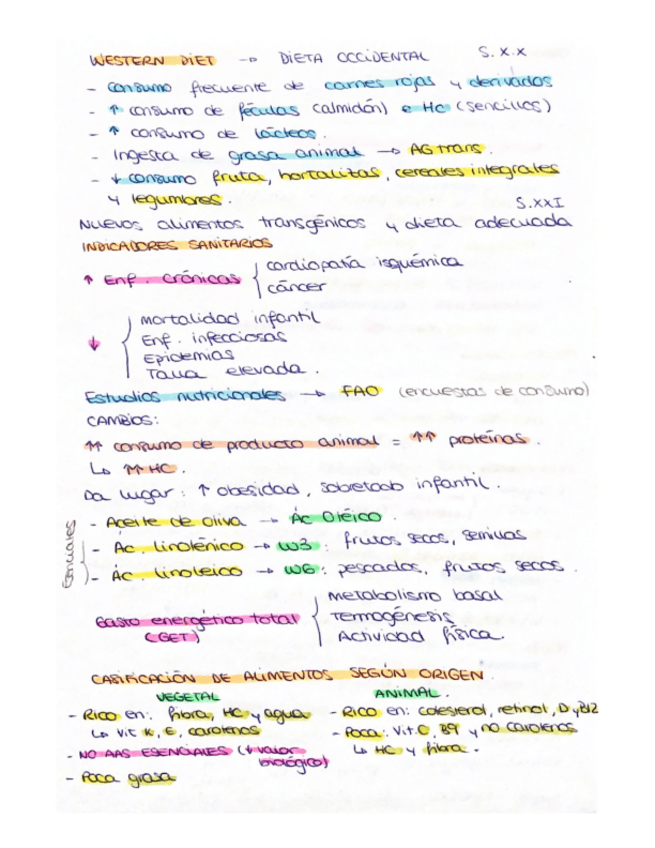 WESTERN DIET → DIETA OCCIDENTAL S. X.X
- Consumo frecuente de carnes rojas y derivados
- ↑ consumo de féculas (almidón) e HC (sencillos)
- ↑ consumo de lácteos.
- Ingesta de grasa animal → AG trans.
- ↓ consumo fruta, hortalizas, cereales integrales
y legumbres.
S.XXI
Nuevos alimentos transgénicos y dieta adecuada
INDICADORES SANITARIOS
↑ Enf. crónicas { cardiopatía isquémica
cáncer
↓ { mortalidad infantil
Enf. infecciosas
Epidemias
Talla elevada.
Estudios nutricionales → FAO (encuestas de consumo)
CAMBIOS:
↑↑ consumo de producto animal = ↑↑ proteínas.
↳ ↑↑ HC.
Da lugar: ↑ obesidad, sobretodo infantil.
- Aceite de oliva → Ác Oléico.
Esenciales { - Ac. linolénico → W3: frutos secos, semillas
- Ác linoleico → W6: pescados, frutos secos.
Gasto energético total (GET) { Metabolismo basal
Termogénesis
Actividad física.
CASIFICACIÓN DE ALIMENTOS SEGÚN ORIGEN.
VEGETAL
- Rico en: fibra, HC y agua
↳ Vit K, E, carotenos
- NO AAS ESENCIALES (↓ valor
biológico)
- Poca grasa
ANIMAL.
- Rico en: colesterol, retinol, D y B12
- Poca: Vit.C, B9 y no carotenos
↳ HC y fibra.